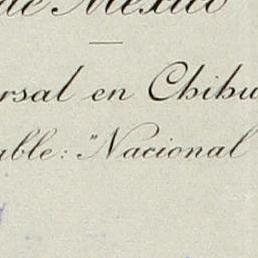 de Mexico
rsal en Chihu
able: "Nacional